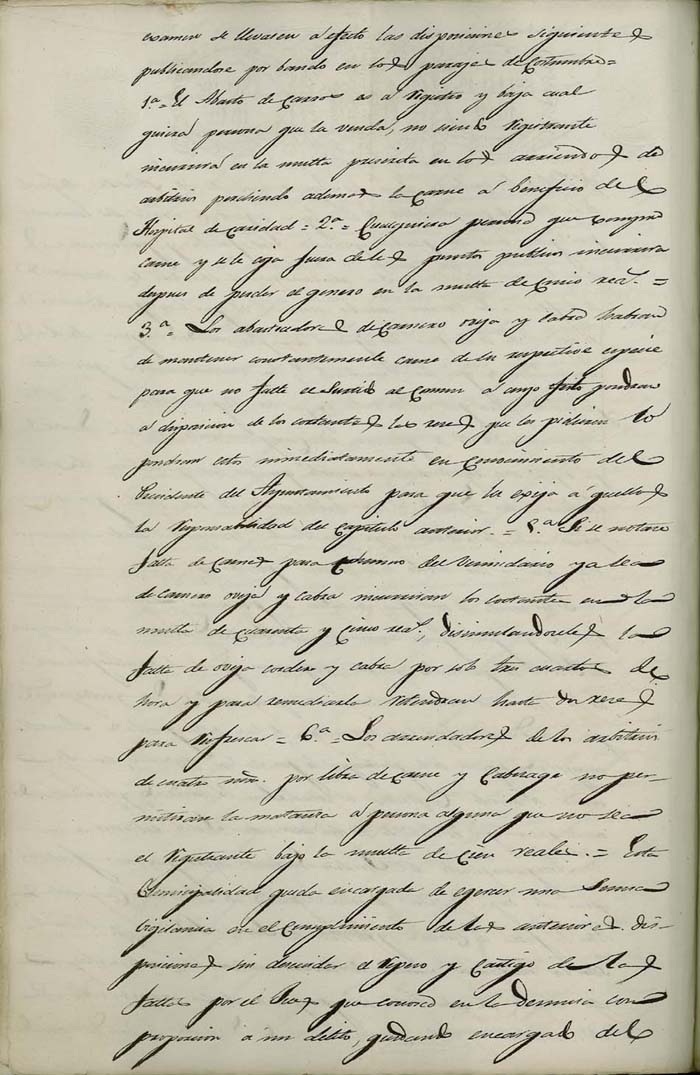 examen se llevasen á efecto las disposiciones siguientes
publicandose por bando en los parajes de Costumbre =
1.ª = El Abasto de Carnes es a registro y baja cual
quiera persona que la venda, no siendo registrante
incurrirá en la multa prescrita en los arriendos de
arbitrios perdiendo ademas la carne á beneficio del
Hospital de caridad = 2.ª = Cualquiera persona que compre
carne y se le coja fuera de los puntos publicos incurrira
despues de perder el genero en la multa de Cinco reas. =
3.ª = Los abastecedores de Carnero oveja y cabra habran
de mantener constantemente carne de su respectiva especie
para que no falte el Surtido al Comun á cuyo efecto pondran
a disposicion de los cortantes las reses que les pidieren lo
pondran estos inmediatamente en Conocimiento del
Presidente del Ayuntamiento para que les exija á quellos
la responsabilidad del Capitulo anterior. = 5.ª Si se notare
falta de Carnes para consumo del Vecindario ya sea
de carnero oveja y cabra incurriran los cortantes en la
multa de cuarenta y Cinco reas., disimulandoseles la
falta de oveja cordero y cabra por solo tres cuartos de
hora y para remediarla retendran hasta dos reses
para refresca = 6.ª = Los arrendadores de los arbitrios
de cuatro mrs. por libra de carne y Cabezage no per-
mitiran la matanza á persona alguna que no sea
el registrante bajo la multa de Cien reales. = Esta
Municipalidad queda encargada de egercer una Suma
vigilancia en el Cumplimiento de las anteriores dis-
posiciones sin descuidar el repeso y Castigo de las
faltas por el Juez que conosca en la denuncia con
proporcion a un delito, quedando encargado del